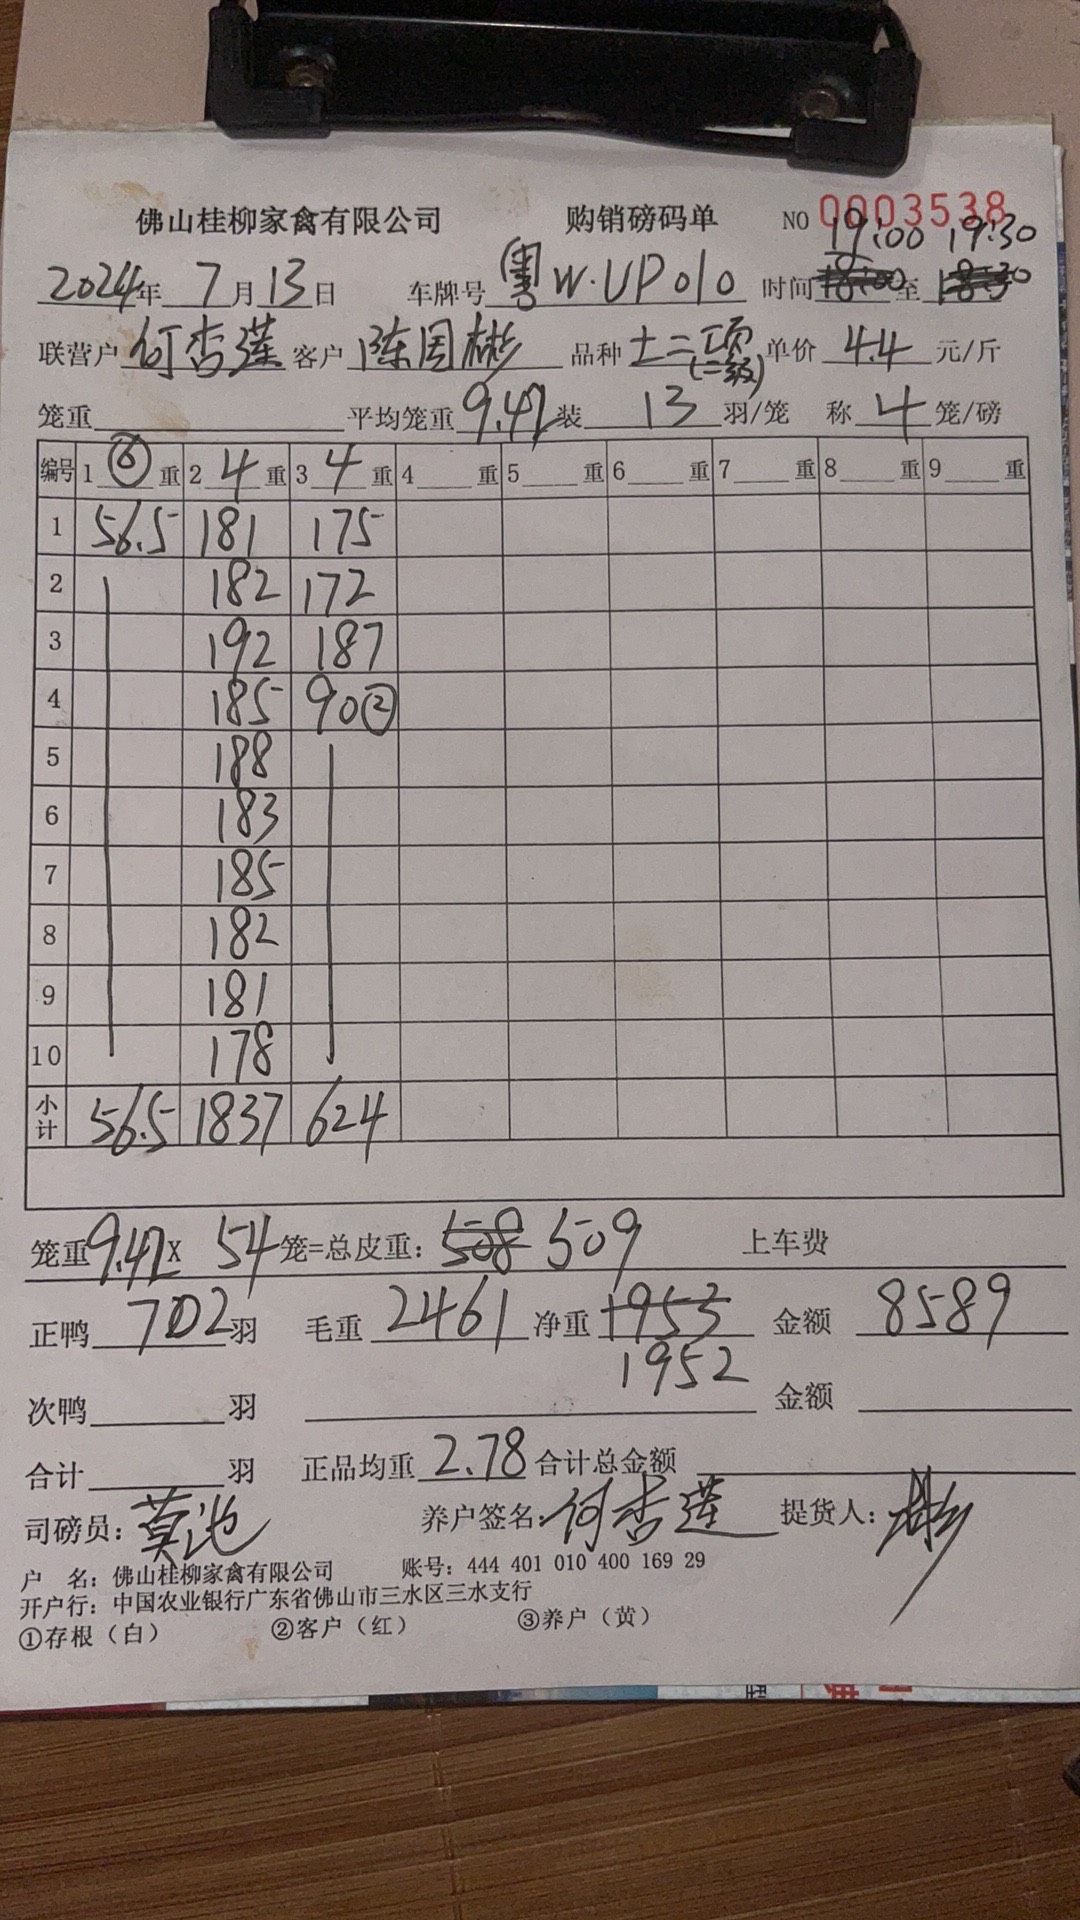 佛山桂柳家禽有限公司 购销磅码单 NO 0003538
19:00 19:30
2024年 7月13日 车牌号 粤W·UP010 时间 18:00 至 18:30
联营户 何杏莲 客户 陈国彬 品种 土二项 单价 4.4 元/斤
(二级)
笼重 平均笼重 9.42 装 13 羽/笼 称 4 笼/磅
编号 1 ⑥ 重 2 4 重 3 4 重 4 重 5 重 6 重 7 重 8 重 9 重
1 56.5 181 175
2 182 172
3 192 187
4 185 90②
5 188
6 183
7 185
8 182
9 181
10 178
小计 56.5 1837 624
笼重 9.42 X 54 笼=总皮重: 508 509 上车费
正鸭 702 羽 毛重 2461 净重 1953 金额 8589
1952
次鸭 羽 金额
合计 羽 正品均重 2.78 合计总金额
司磅员: 莫池 养户签名: 何杏莲 提货人: 彬
户 名: 佛山桂柳家禽有限公司 账号: 444 401 010 400 169 29
开户行: 中国农业银行广东省佛山市三水区三水支行
①存根（白） ②客户（红） ③养户（黄）